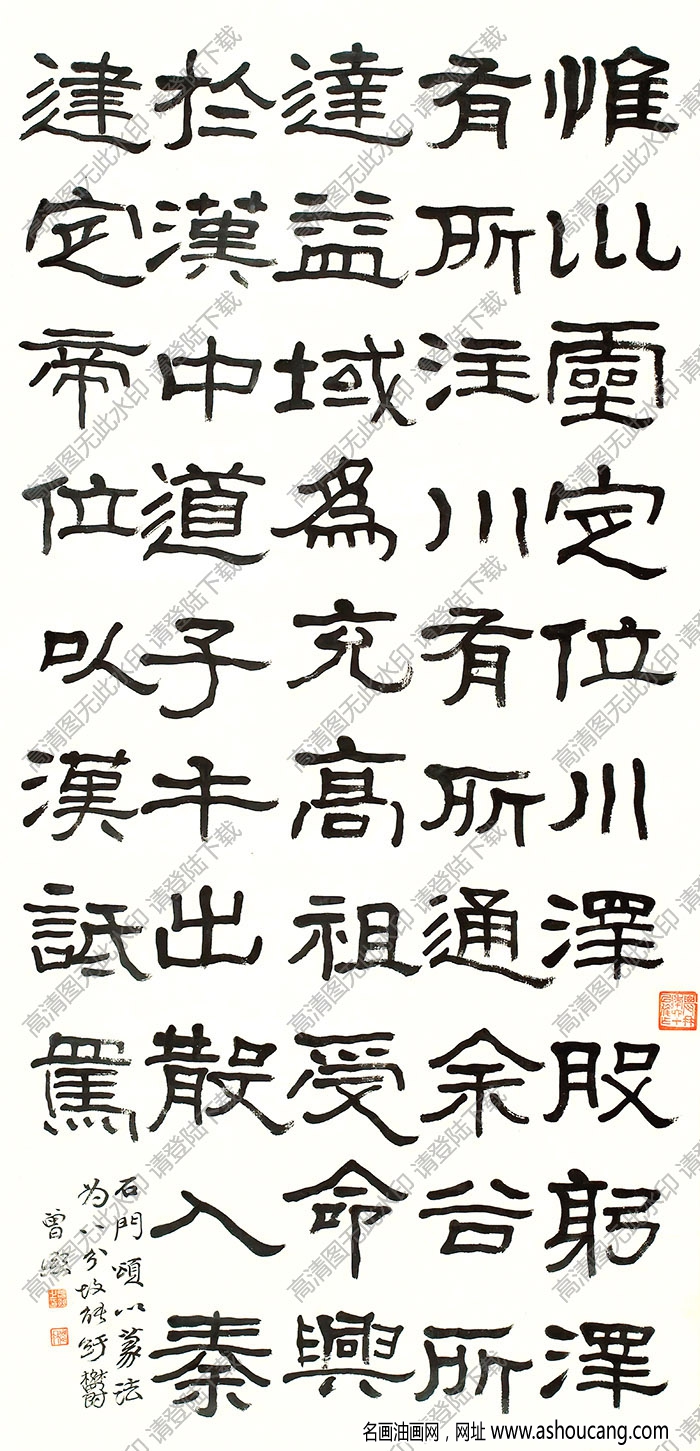 惟巛靈定位川澤股躬澤
有所注川有所通余谷所
達益域爲充高祖受命興
於漢中道子午出散入秦
建定帝位以漢詆焉
石門頌以篆法
为八分故能紆鬱
曾熙
高清图无此水印 请登陆下载
名画油画网，网址 www.ashoucang.com